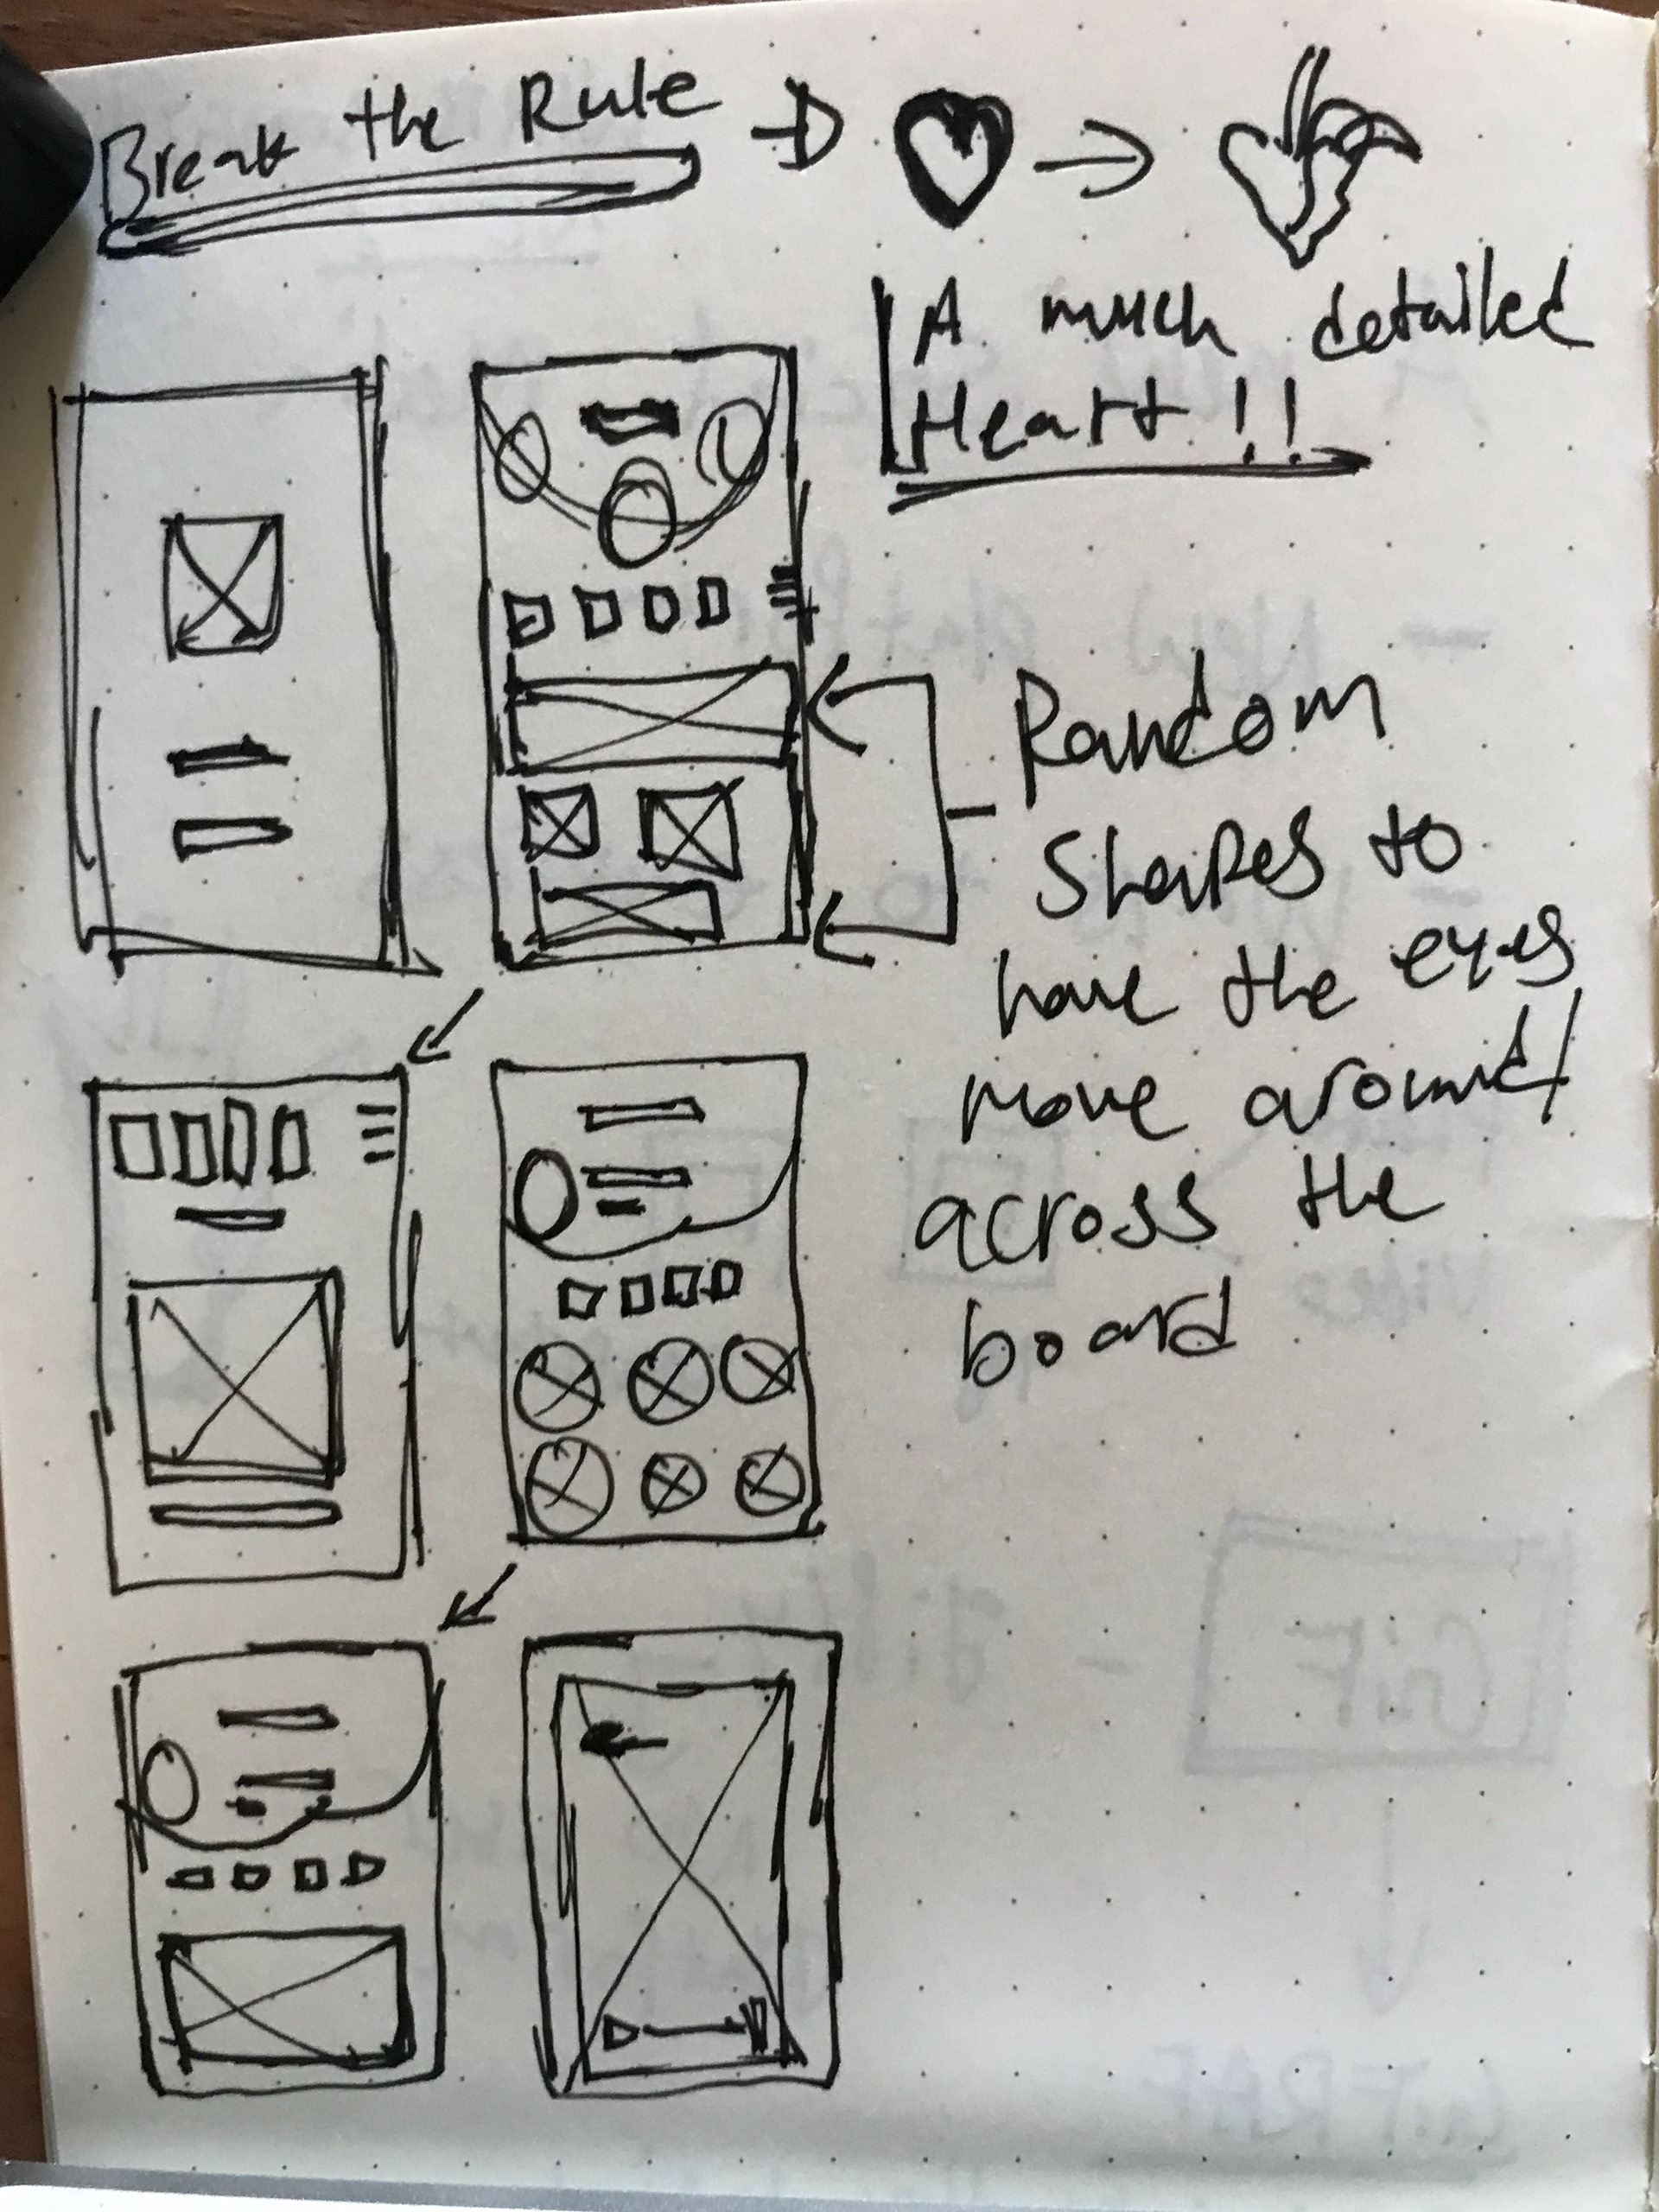 Break the Rule
A much detailed
Heart!!
Random
Shapes to
have the eyes
move around/
across the
board